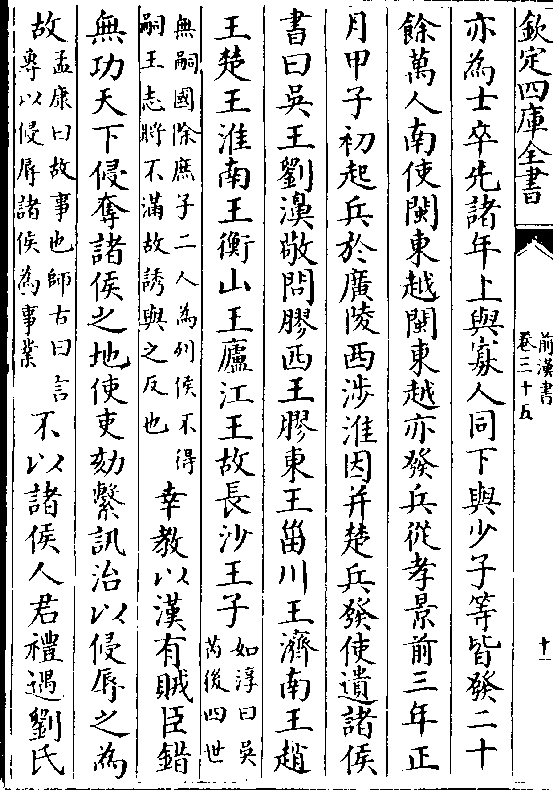 欽定四庫全書
前漢書
卷三十五
十一
亦為士卒先諸年上與寡人同下與少子等皆發二十
餘萬人南使閩東越閩東越亦發兵從孝景前三年正
月甲子初起兵於廣陵西涉淮因并楚兵發使遺諸侯
書曰吳王劉濞敬問膠西王膠東王菑川王濟南王趙
王楚王淮南王衡山王廬江王故長沙王子如淳曰吳芮後四世
無嗣國除庶子二人為列侯不得嗣王志將不滿故誘與之反也幸教以漢有賊臣錯
無功天下侵奪諸侯之地使吏劾繫訊治以侵辱之為
故孟康曰故事也師古曰言專以侵辱諸侯為事業不以諸侯人君禮遇劉氏